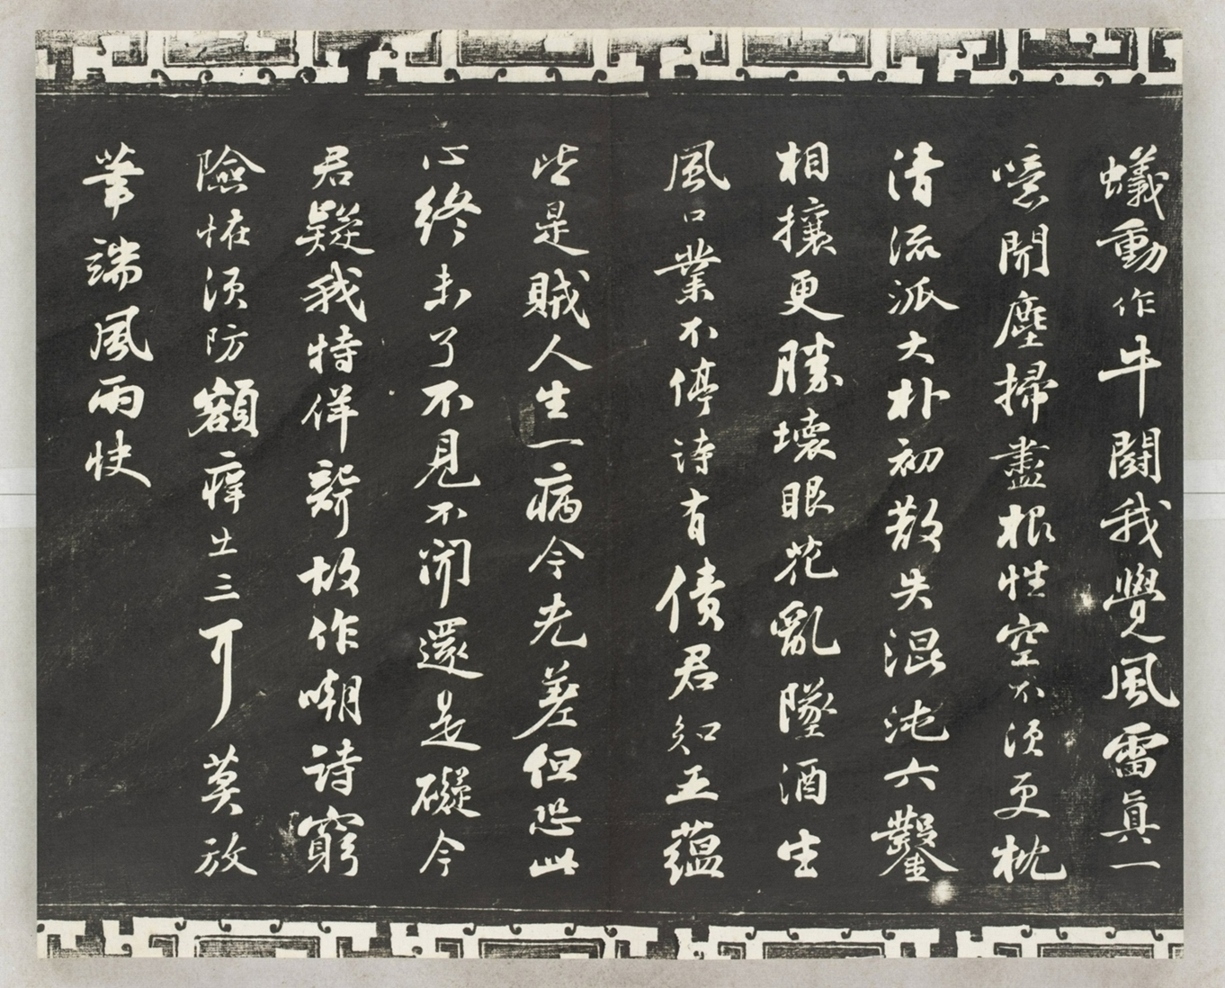 蟻動作牛鬭我覺風雷真一
噫聞塵掃盡根性空不須更枕
清流派大朴初散失混沌六鑿
相攘更勝壞眼花亂墜酒生
風口業不停詩有債君知五蘊
皆是賊人生一病今先差但恐此
心終未了不見不聞還是礙今
君疑我特佯聾故作嘲詩窮
險恠須防額痒出三耳莫放
筆端風雨快